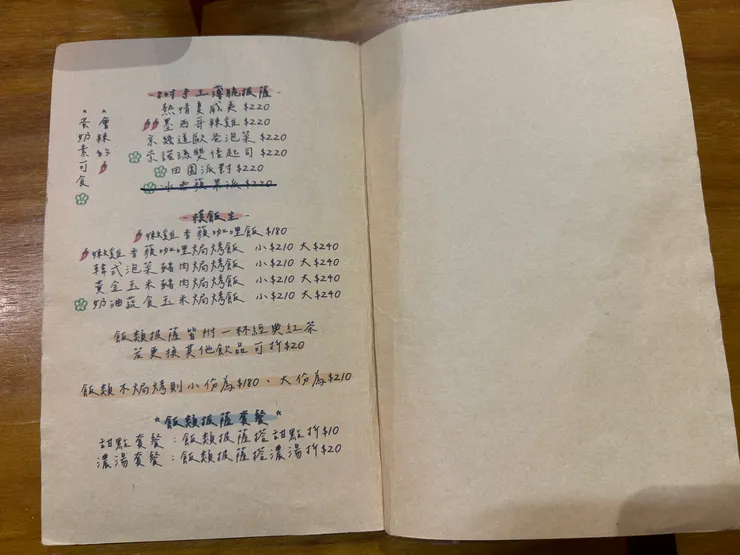 -8吋手工薄脆披薩-
熱情夏威夷 $220
墨西哥辣雞 $220
京綫道歐爸泡菜 $220
茱諾瑪雙倍起司 $220
田園派對 $220
冰西蘋果派 $220
* 會辣的
* 蛋奶素可食
-樸飯
辣雞香蘋咖哩飯 $180
辣雞香蘋咖哩焗烤飯 小$210 大$240
韓式泡菜豬肉焗烤飯 小$210 大$240
黃金玉米豬肉焗烤飯 小$210 大$240
奶油蔬食玉米焗烤飯 小$210 大$240
飯類披薩皆附一杯經典紅茶
若更換其他飲品可折$20
飯類不焗烤則小份為$180、大份為$210
*飯類披薩套餐*
甜點套餐：飯類披薩搭甜點折$10
濃湯套餐：飯類披薩搭濃湯折$20